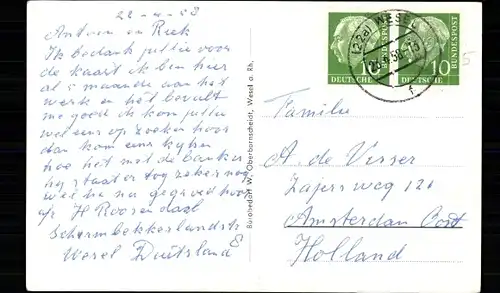 22-4-58
Antoon en Riek
Ik bedank jullie voor
de kaart ik ben hier
al 5 maande aan het
werk en het bevalt
me goed ik kom jullie
wel eens op zoeken hoor
dan kom eens kijken
hoe het met de banken
hij staat er tog zeker nog
wel he nu gegroet hoor
af H Roosendaal
Schermbekkerlandstr
Wesel Duitsland
Bürobedarf W. Oberbornscheidt, Wesel a. Rh.
(22a) WESEL
-6.58-15
f
10
DEUTSCHE
BUNDESPOST
10
DEUTSCHE
BUNDESPOST
5
Familie
A. de Visser
Zajersweg 121
Amsterdam Oost
Holland